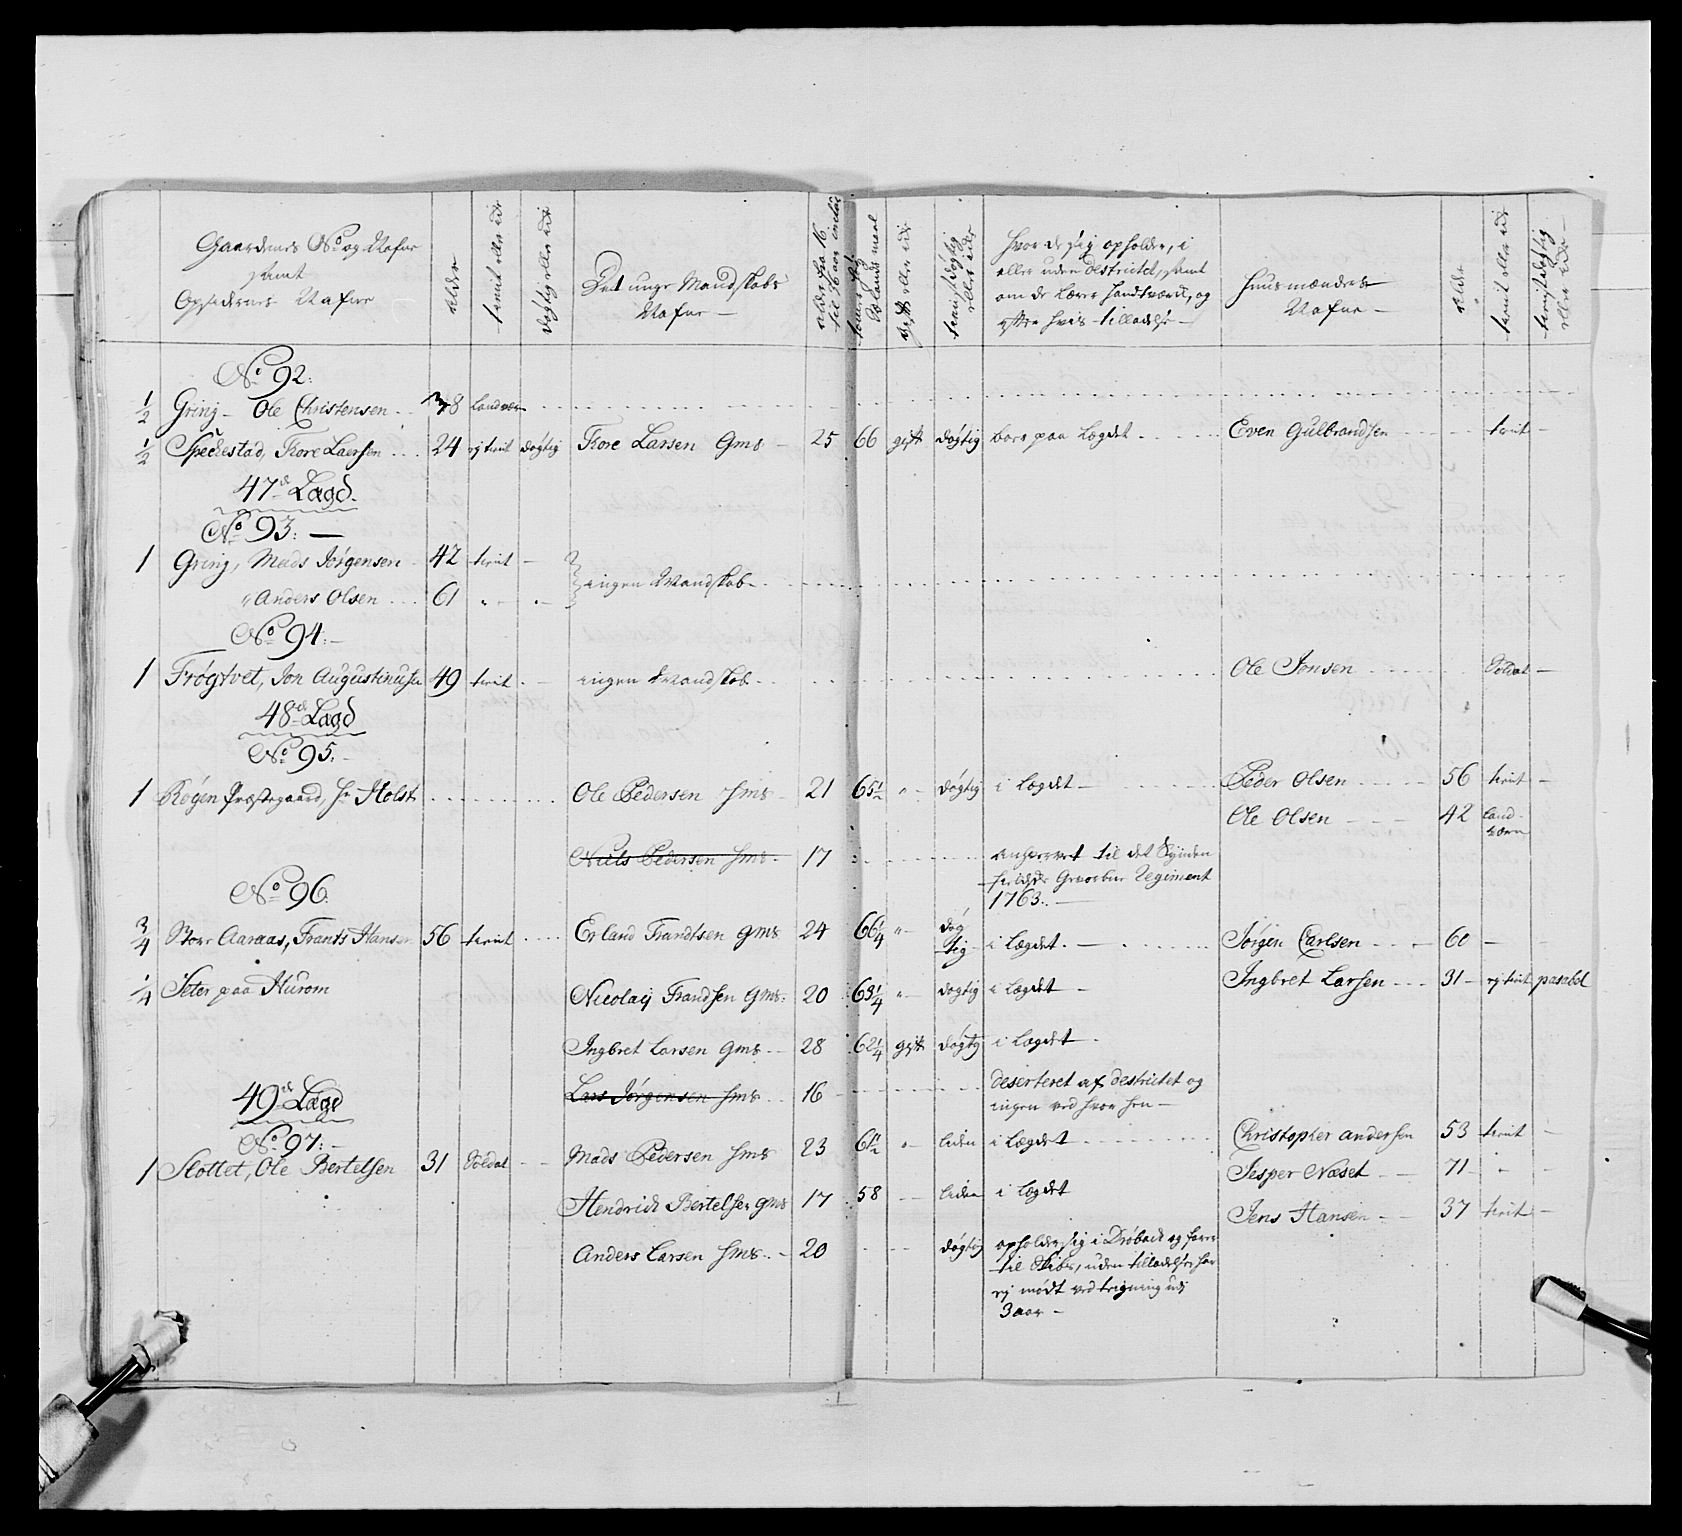 Gaardenes No og Nafne
samt
Opsidernes Nafne
Alder
tient eller ei
døgtig eller ei
Det unge Mandskabs
Nafne —
Alder fra 16
til 36 aar inclus
gift eller ei
tienstdøgtig
eller ei
hvor de sig opholder, i
eller uden destrictet, samt
om de lærer handtværk, og
efter hvis tilladelse —
Huusmændenes
Nafne —
Alder
tient eller ei
tienstdøgtig
eller ei —
No 92:
1/2 Gring — Ole Christensen 38 Landværn
1/2 Speckestad, Tore Laersen 24 ej tient døgtig Tore Larsen Gms — 25 66 gift døgtig boer paa Lægdet Even Gulbrandsen tient —
47de Lægd.
No 93: —
1 Gring, Mads Jørgensen 42 tient —
" Anders Olsen 61 " — " — ingen Mandskab
No 94: —
1 Frøgtvet, Jon Augustinusen 49 tient — ingen Mandskab Ole Jonsen Soldat —
48de Lægd
No 95: —
1 Røgen Præstegaard, Hr Holst Ole Pedersen Hms — 21 65 1/2 " — døgtig i Lægdet — Peder Olsen 56 tient —
Ole Olsen 42 Land-
værn
Niels Pedersen Hms. 17 anhervert til det Synden
fieldske Gevorbne Regiment
1763. —
No 96:
3/4 Store Aaraas, Frants Hansen 56 tient Erland Frandtsen Gms 24 66 1/4 " — døg
tig i Lægdet. — Jørgen Carlsen 60 —
1/4 Seter paa Hurom Nicolaij Frandsen Gms. 20 63 1/4 " — døgtig i Lægdet — Ingbret Larsen 31 — ej tient pasabel
Ingbret Larsen Gms — 28 62 1/4 gift døgtig i Lægdet —
Lars Jørgensen Hms 16 deserteret af destrictet og
ingen ved hvor hen —
49de Lægd
No 97: —
1 Slottet, Ole Bertelsen 31 Soldat — Mads Pedersen Hms 23 61 1/2 " liden i Lægdet Christopher Andersen 53 tient —
Jesper Næset 71 " —
Hendrich Bertelsen Gms 17 58 — liden i Lægdet
Jens Hansen 37 tient —
Anders Larsen Hms — 20 døgtig opholder sig i Drøbach og farer
til Siøes, uden tilladelse, har
ej mødt ved tegning udj
3 aar —